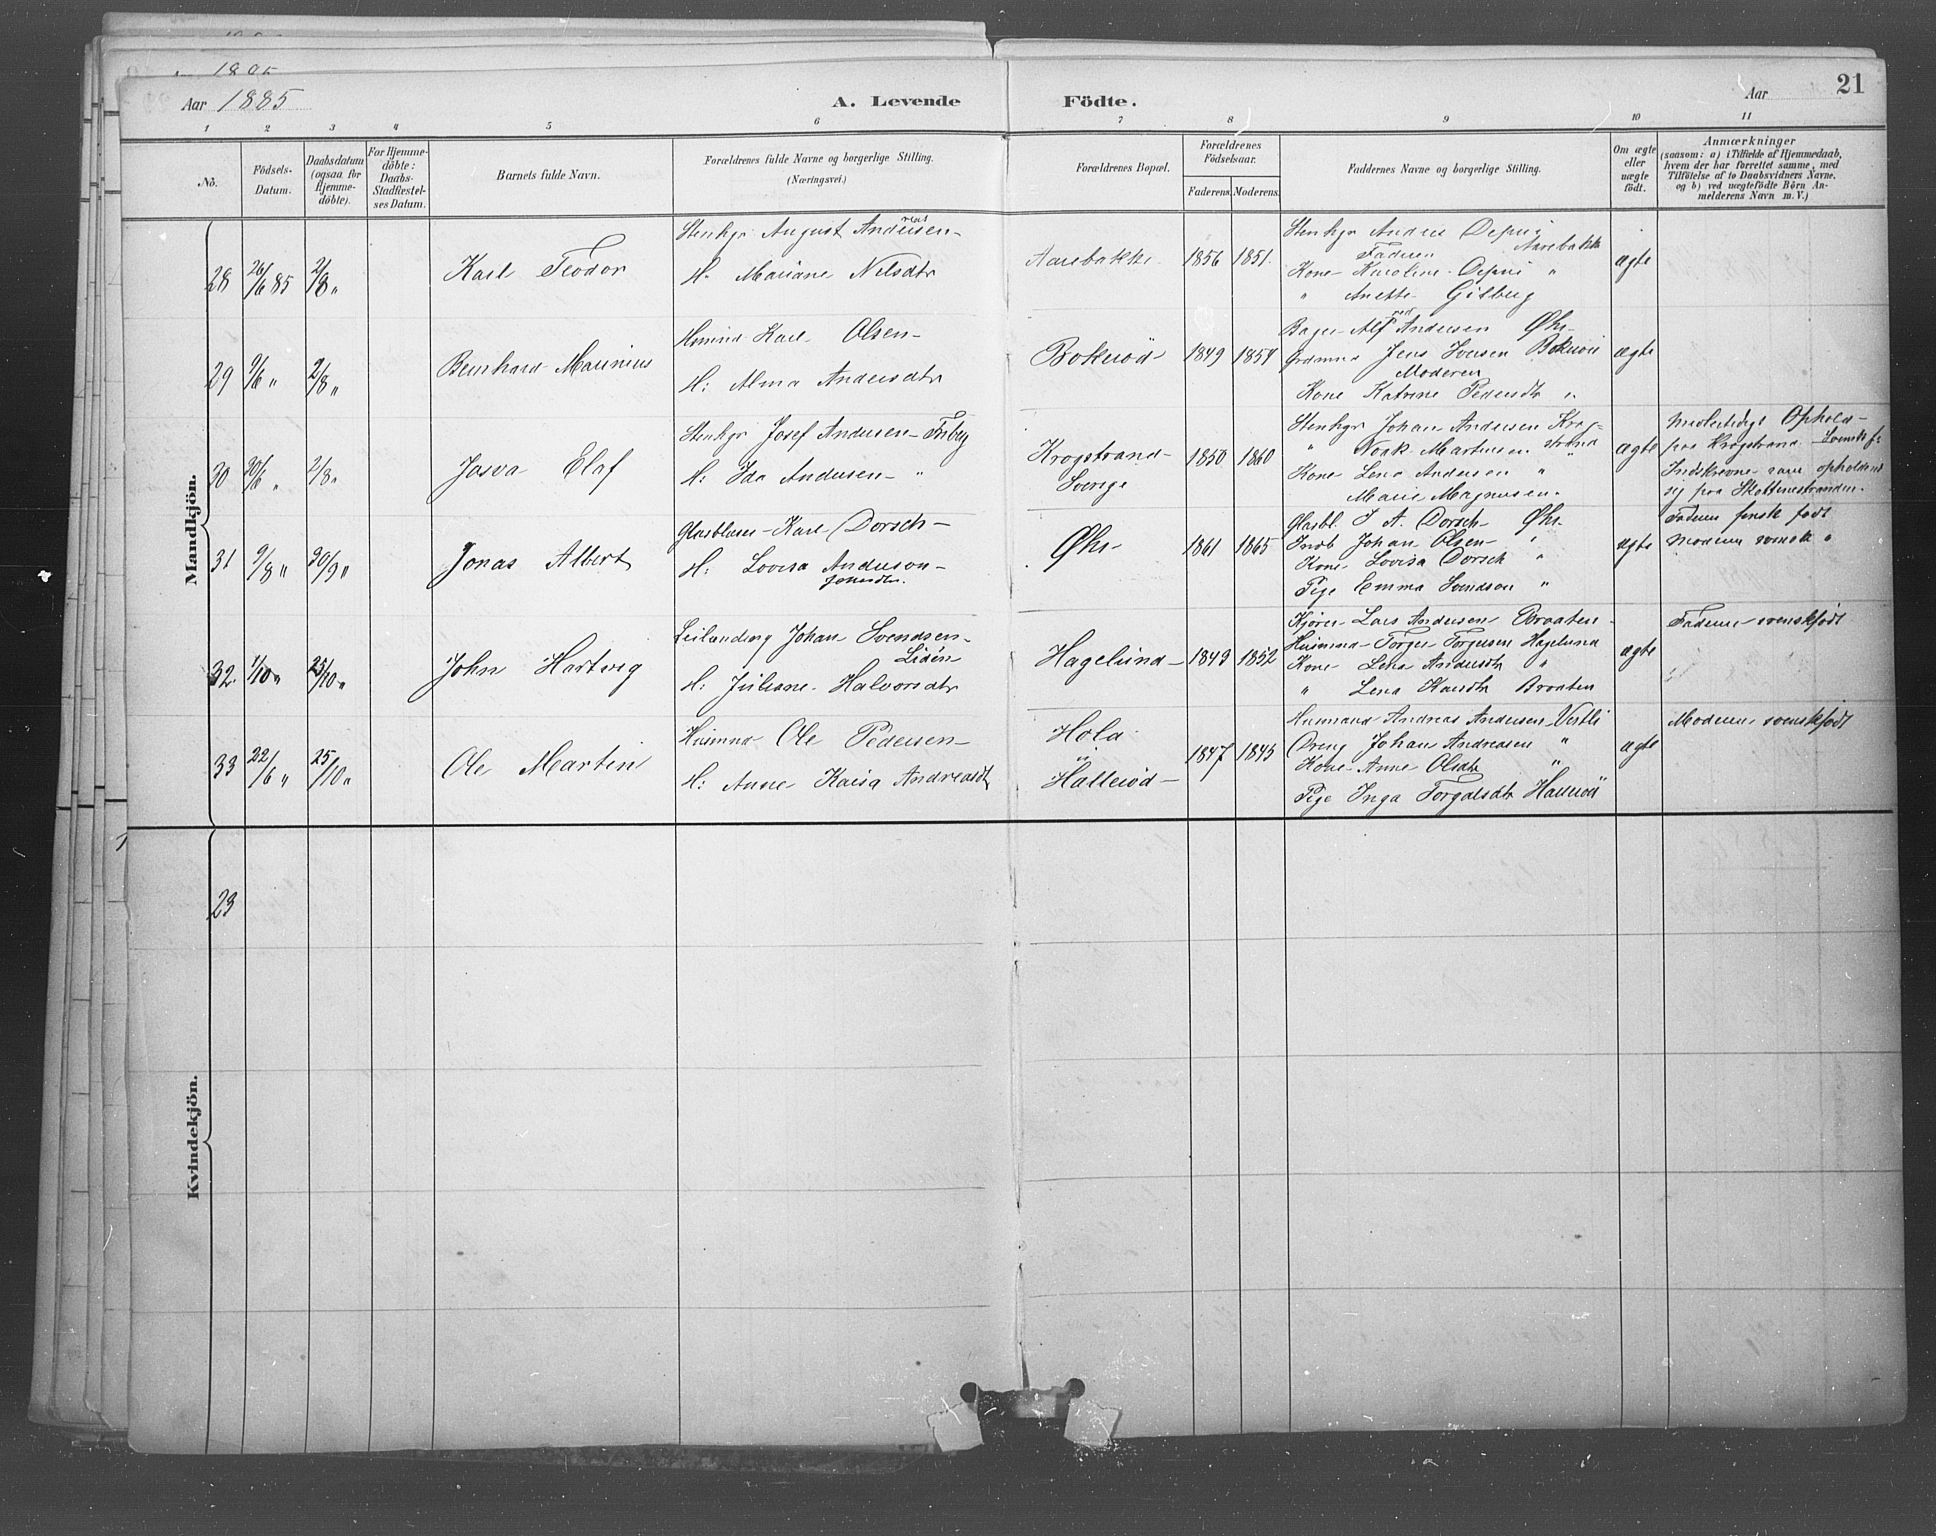 Aar 1885
A. Levende Födte.
Aar
21
1 2 3 4 5 6 7 8 9 10 11
No.
Födsels-Datum.
Daabsdatum (ogsaa for Hjemme-döbte).
For Hjemme-döbte: Daabs-Stadfæstel-ses Datum.
Barnets fulde Navn.
Forældrenes fulde Navne og borgerlige Stilling.
(Næringsvei.)
Forældrenes Bopæl.
Forældrenes Födselsaar.
Faderens. Moderens.
Faddernes Navne og borgerlige Stilling.
Om ægte eller uægte födt.
Anmærkninger
(saasom: a) i Tilfælde af Hjemmedaab,
hvem der har forrettet samme, med
Tilföielse af to Daabsvidners Navne,
og b) ved uægtefödte Börn An-
melderens Navn m. V.)
Mandkjön.
28 26/6 85 2/8 „
Karl Teodor
Stenhgr August Andersen
H. Mariane Nilsdtr
Aarebakke 1856 1851
Stenhgr Anders
Faderen Aarebakke
Kone Karoline „
„ Anette Gitberg
ægte
29 9/6 „ 2/8 „
Bernhard Marinius
Husmd Karl Olsen
H: Alma Andersdtr
Bokerød 1849 1854
Bager Alf Andersen Øhr
Jens Iversen Bokerød
Moderen
Kone Katrine Pedersdtr „
ægte
30 30/6 „ 2/8 „
Josva Elof
Stenhgr Josef Andersen Friberg
H: Ida Andersen „
Krogstrand
Sverige
1850 1860
Stenhgr Johan Andersen Krog-
„ Noak Martinsen strand
Kone Lena Andersen „
Marie Magnusen „
ægte
Midlertidigt Ophold
paa Krogstrand. Svensk f.
Indskrevne som opholdende
sig paa Skottenestranden.
31 9/8 „ 30/9 „
Jonas Albert
Glasblaser Karl Dorsch
H: Lovisa Anderson
Øhr 1861 1865
Glasbl. J. A. Dorsch Øhr
Indb Johan Olsen „
Kone Lovisa Dorsch „
Pige Emma Svendson „
ægte
Faderen finsk født
Moderen svensk „
32. 1/10 „ 25/10 „
John Hartvig
Leilending Johan Svendsen
Lidén
H: Juliane Halvorsdtr
Hagelund 1843 1852
Kjører Lars Andersen Braaten
Husmnd Torger Torgersen Hagelund
Kone Lena Andersdtr „
„ Lena Braaten
ægte
Faderen svenskfødt
33 22/6 „ 25/10 „
Ole Martin
Husmnd Ole Pedersen
H: Anne Kaisa Andreasdtr
Hola
u/
Hallerød
1847 1845
Husmand Andreas Andersen Vestli
Dreng Johan Andreasen „
Kone Anne Olsdtr „
Pige Inga Torgalsdtr Hallerød
ægte
Moderen svenskfødt
Kvindekjön.
23